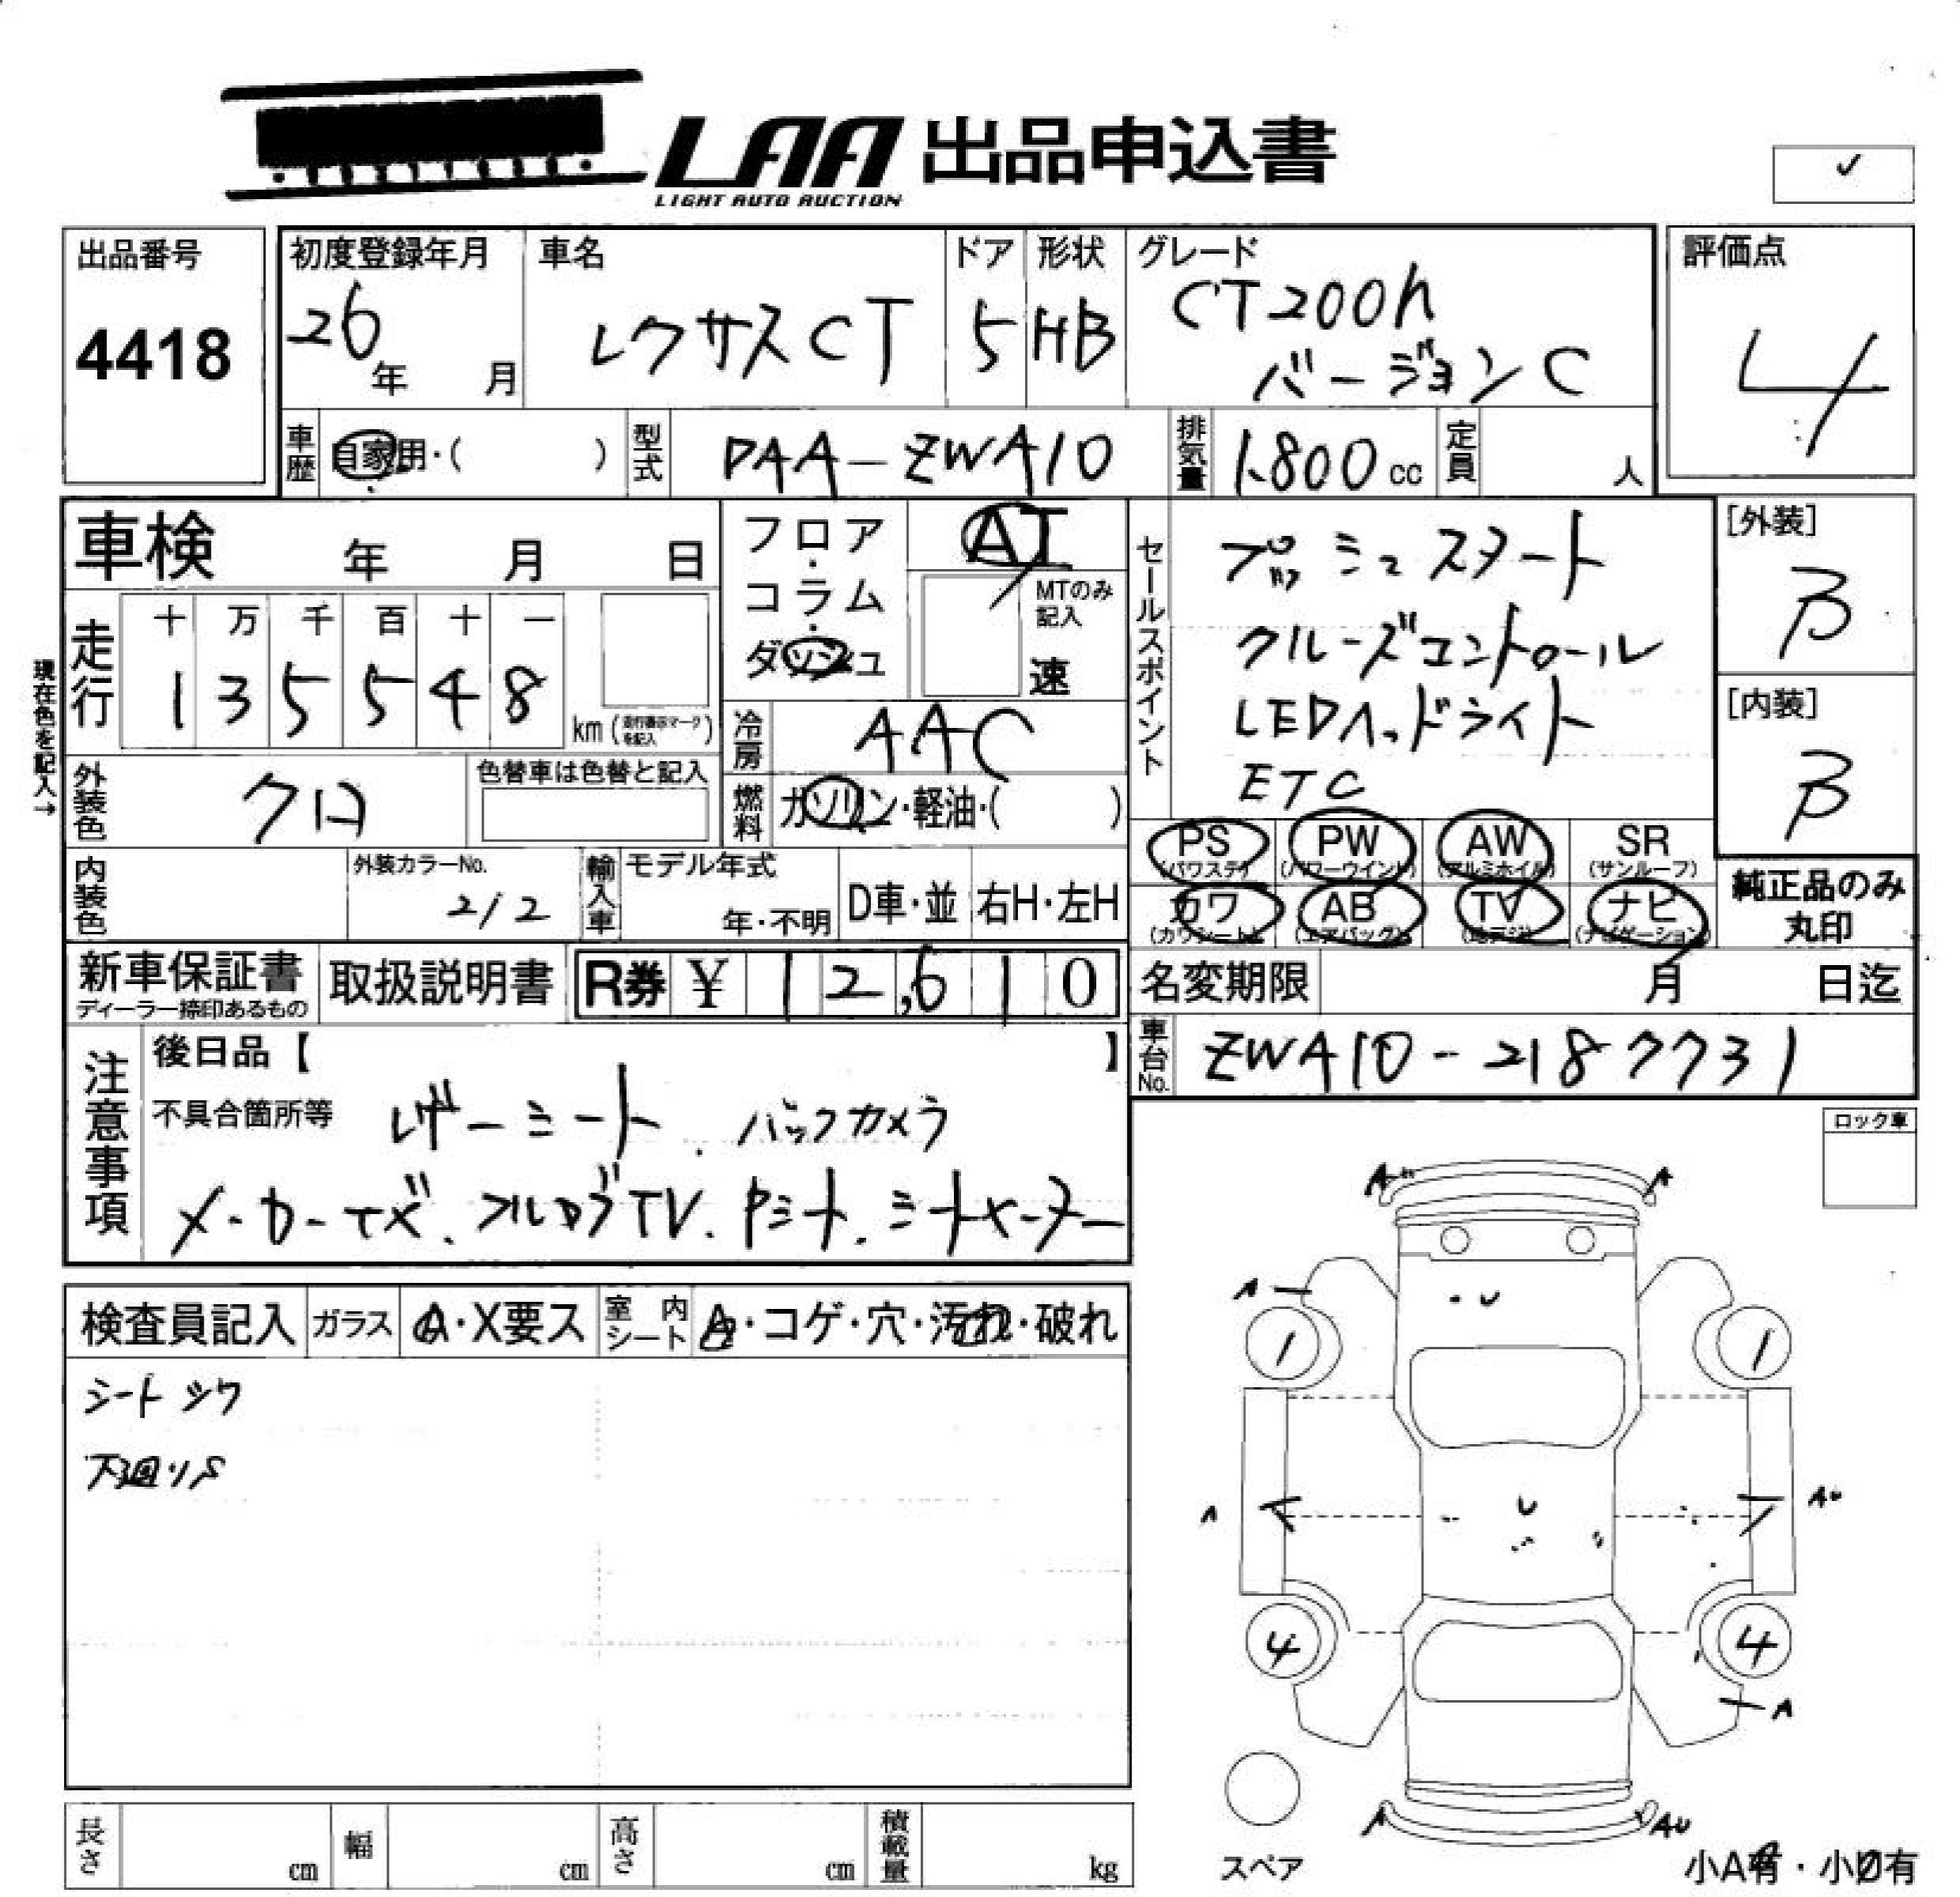 LAA 出品申込書
LIGHT AUTO AUCTION
✓
出品番号
4418
初度登録年月
26年 月
車名
レクサスCT
ドア
5
形状
HB
グレード
CT200h
バージョンC
評価点
4
車歴
自家用・( )
型式
DAA-ZWA10
排気量
1.800 cc
定員
人
車検 年 月 日
フロア・コラム・ダッシュ
AT
MTのみ記入
速
セールスポイント
プッシュスタート
クルーズコントロール
LEDヘッドライト
ETC
[外装]
B
[内装]
B
現在色を記入→
走行
十 万 千 百 十 一
1 3 5 5 4 8
km (走行表示マークを記入)
冷房
AAC
外装色
クロ
色替車は色替と記入
燃料
ガソリン・軽油・( )
PS (パワステ) PW (パワーウインド) AW (アルミホイル) SR (サンルーフ)
カワ (カワシート) AB (エアバッグ) TV (地デジ) ナビ (ナビゲーション)
純正品のみ丸印
内装色
外装カラーNo.
212
輸入車
モデル年式
年・不明
D車・並
右H・左H
新車保証書
ディーラー捺印あるもの
取扱説明書
R券 ¥ 12,610
名変期限 月 日迄
車台No.
ZWA10-2187731
注意事項
後日品【 】
不具合箇所等 レザーシート. バックカメラ
メーカーナビ. フルセグTV. Pシート. シートヒーター
ロック車
検査員記入
ガラス
A・X要ス
室内シート
A・コゲ・穴・汚れ・破れ
シート シワ
下廻りS
A A
A
U
1 1
A U AU
4 4
A
A AU
スペア
小A有・小U有
長さ cm
幅 cm
高さ cm
積載量 kg